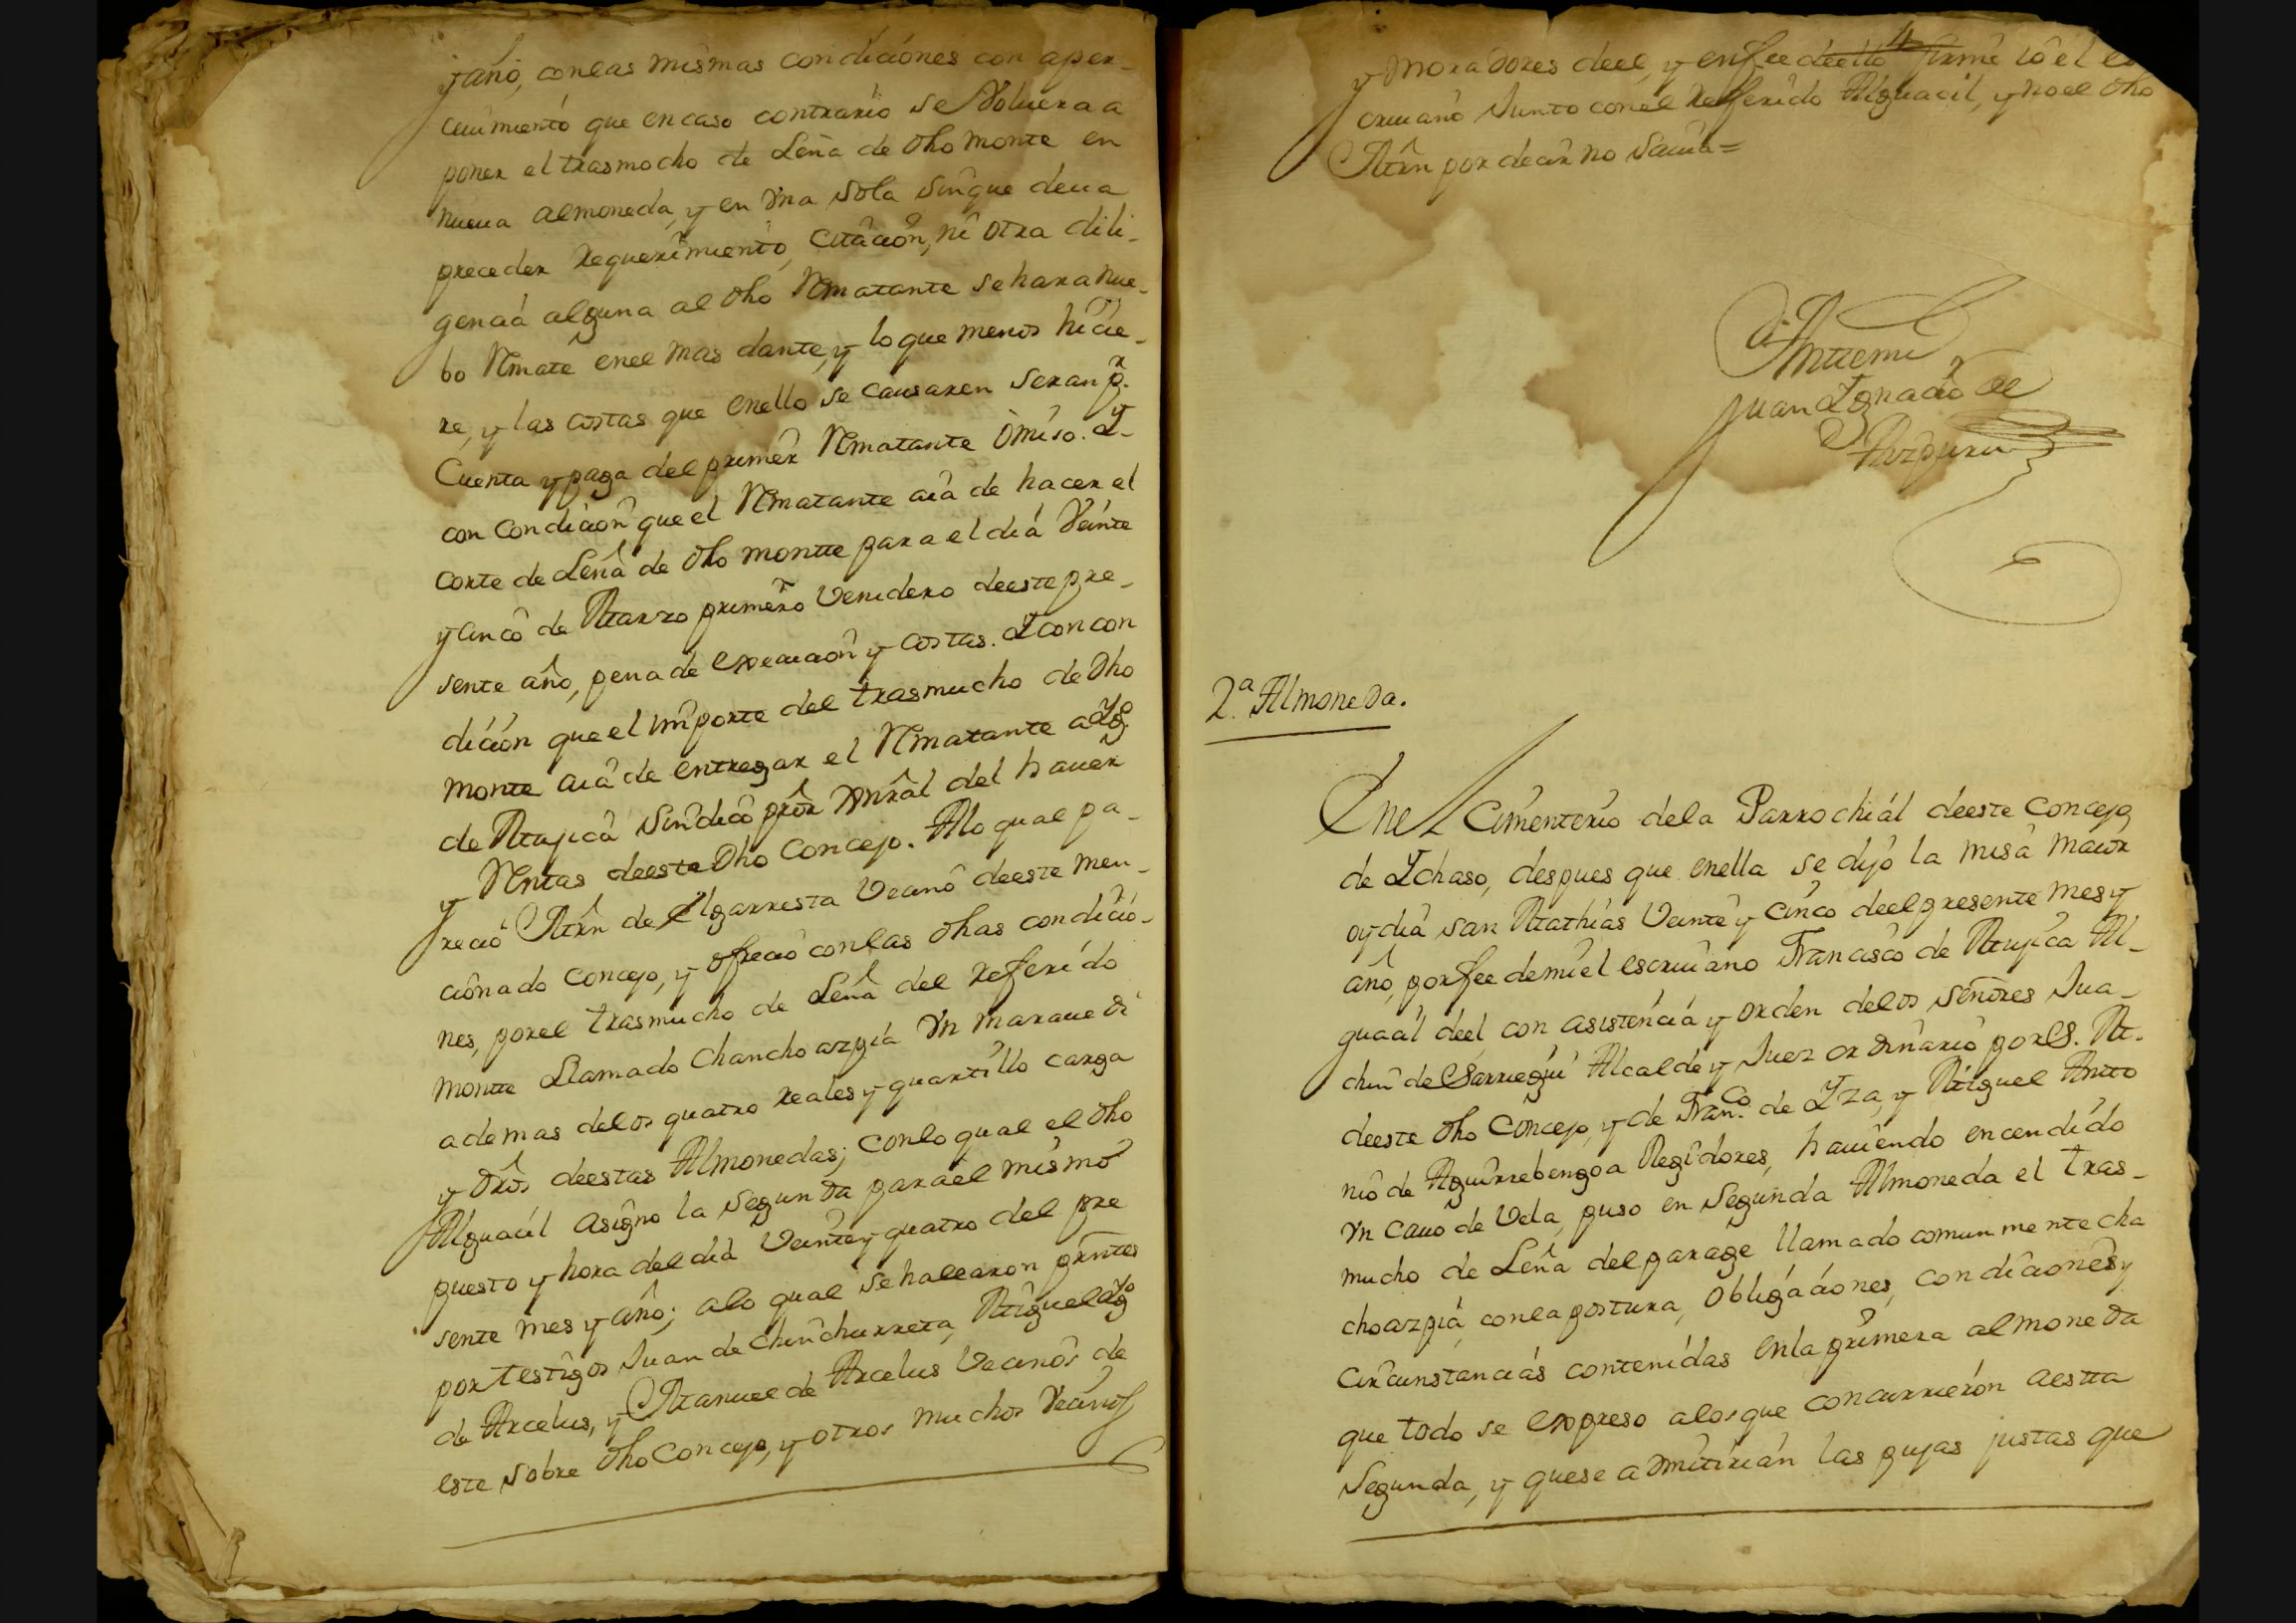 y año, con las mismas condiciones con aper-
ceuimiento que en caso contrario se Voluera a
poner el trasmocho de Leña de dho monte en
nueua almoneda, y en Vna sola sin que deua
preceder Requerimiento, Citacion, ni otra dili-
gencia alguna al dho Rmatante se hara nue-
bo Rmate en el mas dante, y lo que menos hicie-
re, y las costas que en ello se causaren seran pr.
Cuenta y paga del primer Rmatante Omiso. Y
con Condicion que el Rmatante aia de hacer el
corte de Leña de dho montte para el dia Veinte
y cinco de Marzo primero Venidero deeste pre-
sente año, pena de execucion y costas. Y con con
dicion que el importe del trasmucho de Dho
monte aia de entregar el Rmatante a Ygº
de Mujica Sindico pror Gnral del hauer
y Rentas deeste Dho Concejo. Alo qual pa-
recio Mrn de Elgarresta Vecino deeste men-
cionado Concejo, y ofrecio con las dhas condicio-
nes, por el trasmucho de Leña del Referido
montte Llamado Chanchoazpia Vn maraue di
ademas delos quatro Reales y quartillo carga
y dros deestas Almonedas; con lo qual el dho
Alguacil asigno la segunda para el mismo
puesto y hora del dia Veinte y quatro del pre
sente mes y año; alo qual se hallaron prntes
por testigos Juan de Chinchurreta, Miguel Ygº
de Arcelus, y Manuel de Arcelus Vecinos de
este sobre dho Concejo, y otros muchos Vecinos
4
y Moradores deel, y en fee deello firme io el es
criuano Junto con el Referido Alguacil, y no el dho
Mrn por decir no sauia=
Anttemi
Juan Ygnacio de
Aizpuru
2.ª Almoneda.
Enel Cimenterio dela Parrochial deeste Concejo
de Ychaso, despues que enella se dijo la misa maior
oy dia san Mathias Veinte y Cinco deel presente mes y
año, por fee demi el escriuano Francisco de Mujica Al-
guacil deel con asistencia y orden delos señores Jua-
chin de Sarriegui Alcalde y Juez ordinario por S. M.
deeste dho Concejo, y de Franco. de Yza, y Miguel Anto
nio de Aguirrebengoa Regidores, hauiendo encendido
Vn Cauo de Vela, puso en Segunda Almoneda el tras-
mucho de Leña del parage llamado comunmente cha
choazpia, con la postura, Obligaciones, condiciones y
Circunstancias contenidas enla primera almoneda
que todo se expreso alos que concurrieron aestta
Segunda, y que se admitirian las pujas justas que